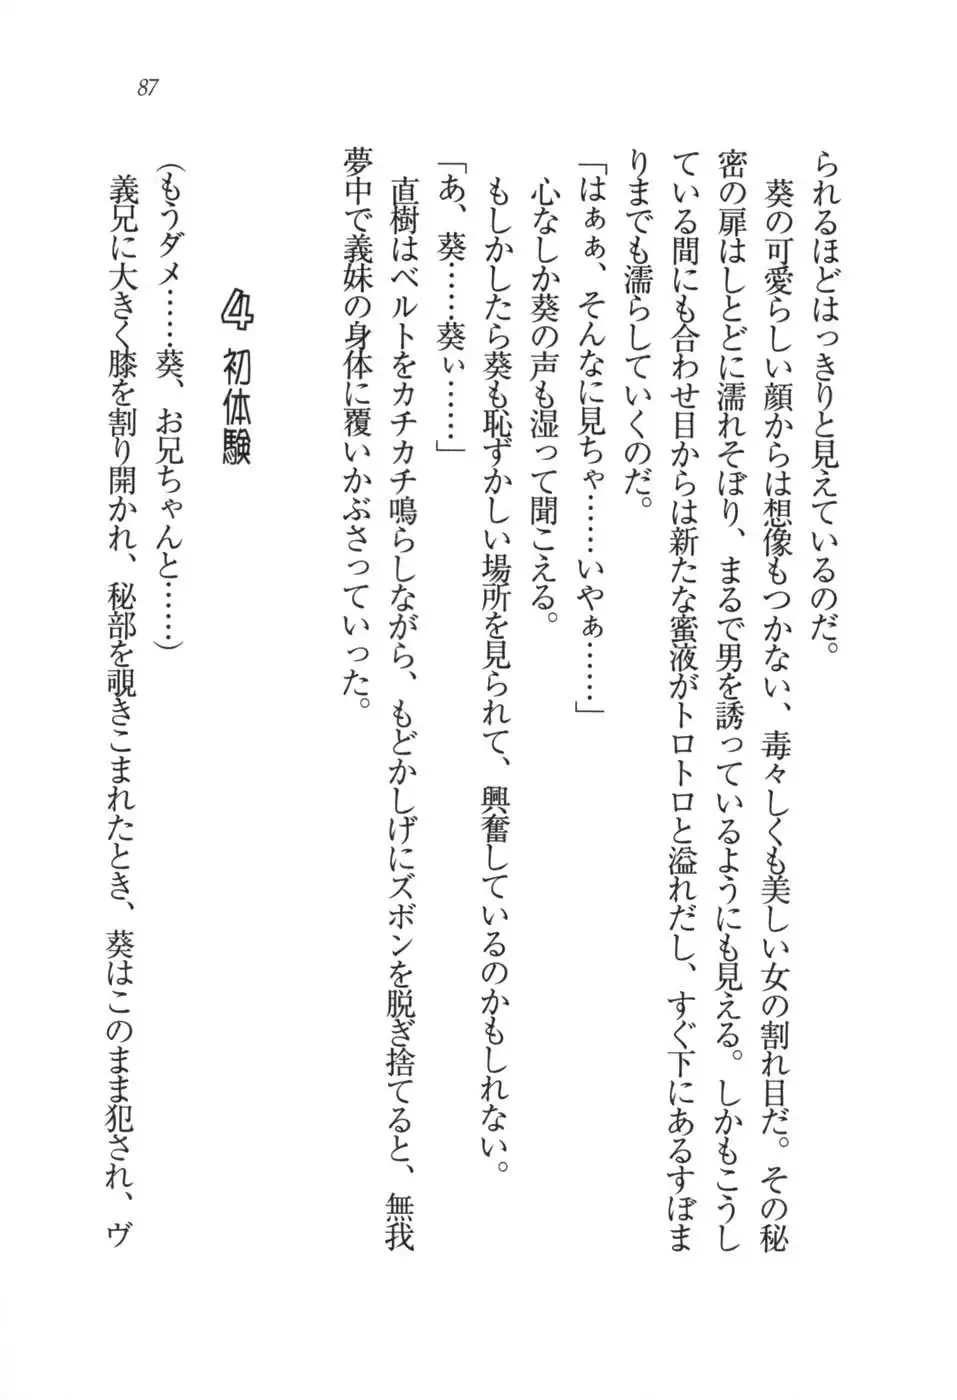 87
られるほどはっきりと見えているのだ。
葵の可愛らしい顔からは想像もつかない、毒々しくも美しい女の割れ目だ。その秘
密の扉はしとどに濡れそぼり、まるで男を誘っているようにも見える。しかもこうし
ている間にも合わせ目からは新たな蜜液がトロトロと溢れだし、すぐ下にあるすぼま
りまでも濡らしていくのだ。
「はぁぁ、そんなに見ちゃ……いやぁ……」
心なしか葵の声も湿って聞こえる。
もしかしたら葵も恥ずかしい場所を見られて、興奮しているのかもしれない。
「あ、葵……葵ぃ……」
直樹はベルトをカチカチ鳴らしながら、もどかしげにズボンを脱ぎ捨てると、無我
夢中で義妹の身体に覆いかぶさっていった。
4 初体験
(もうダメ……葵、お兄ちゃんと……)
義兄に大きく膝を割り開かれ、秘部を覗きこまれたとき、葵はこのまま犯され、ヴ